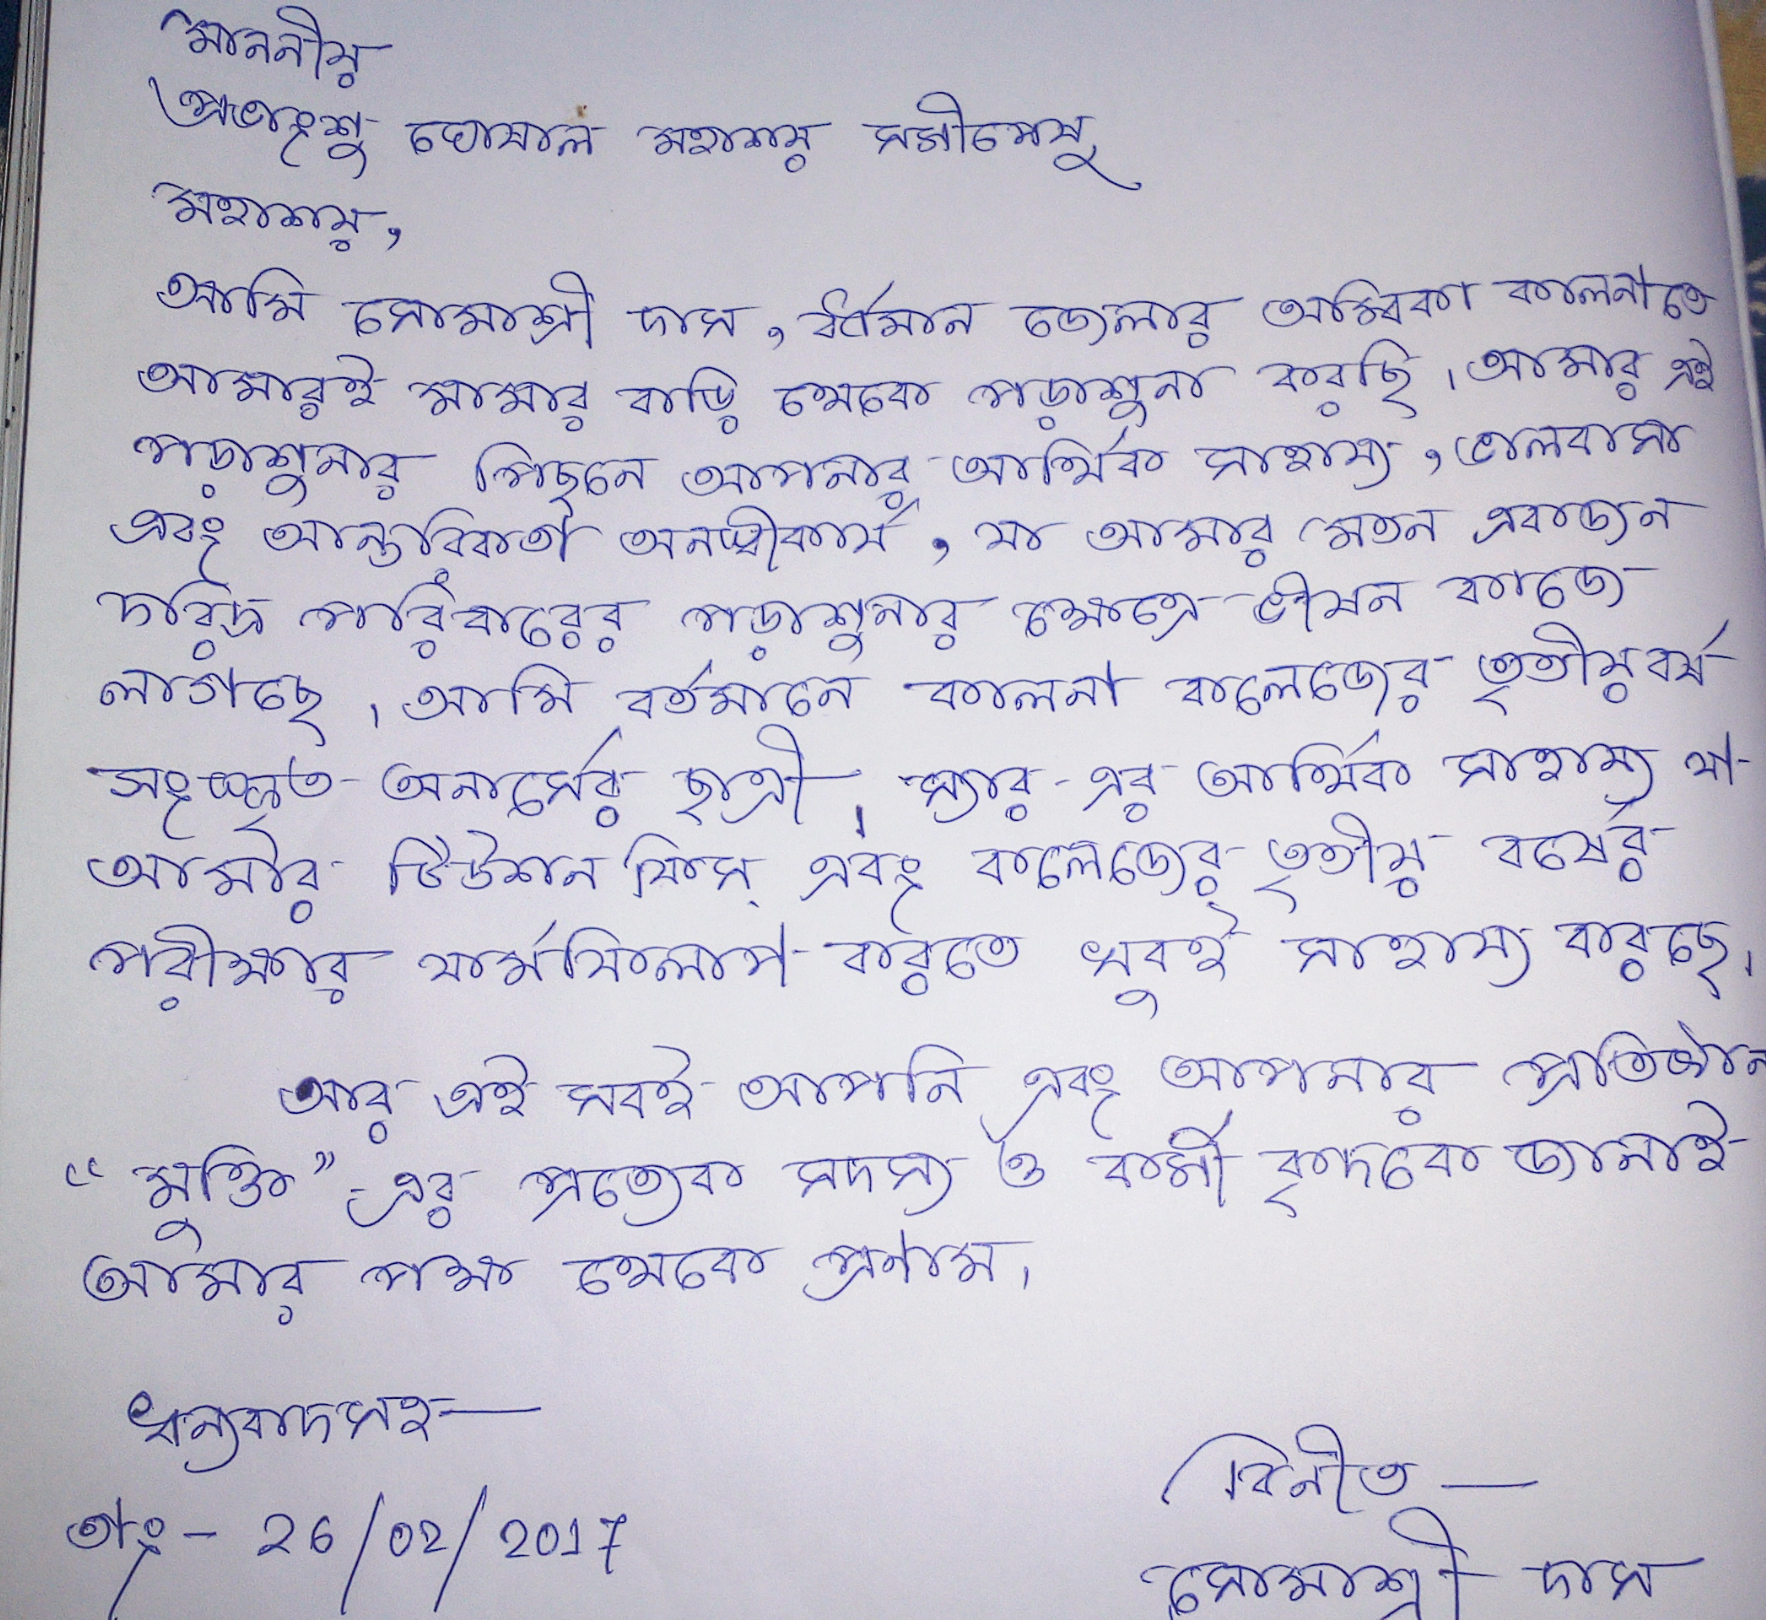 মাননীয়
প্রভাংশু ঘোষাল মহাশয় সমীপেষু
মহাশয়,
আমি সোমাশ্রী দাস, বর্তমান জেলার অম্বিকা কালনাতে
আমারই মামার বাড়ি থেকে পড়াশুনা করছি। আমার এই
পড়াশুনার পিছনে আপনার আর্থিক সাহায্য, ভালবাসা
এবং আন্তরিকতা অনস্বীকার্য, যা আমার মতন একজন
দরিদ্র পরিবারের পড়াশুনার ক্ষেত্রে ভীষন কাজে
লাগছে। আমি বর্তমানে কালনা কলেজের তৃতীয়বর্ষ
সংস্কৃত অনার্সের ছাত্রী। স্যার-এর আর্থিক সাহায্য যা
আমার টিউশন ফিস্ এবং কলেজের তৃতীয় বর্ষের
পরীক্ষার ফর্মফিলাপ করতে খুবই সাহায্য করছে।
আর এই সবই আপনি এবং আপনার প্রতিষ্ঠান
“মুক্তি”-এর প্রত্যেক সদস্য ও কর্মী বৃন্দকে জানাই
আমার পক্ষ থেকে প্রণাম।
ধন্যবাদসহ—
তাং- 26/02/2017
বিনীত —
সোমাশ্রী দাস